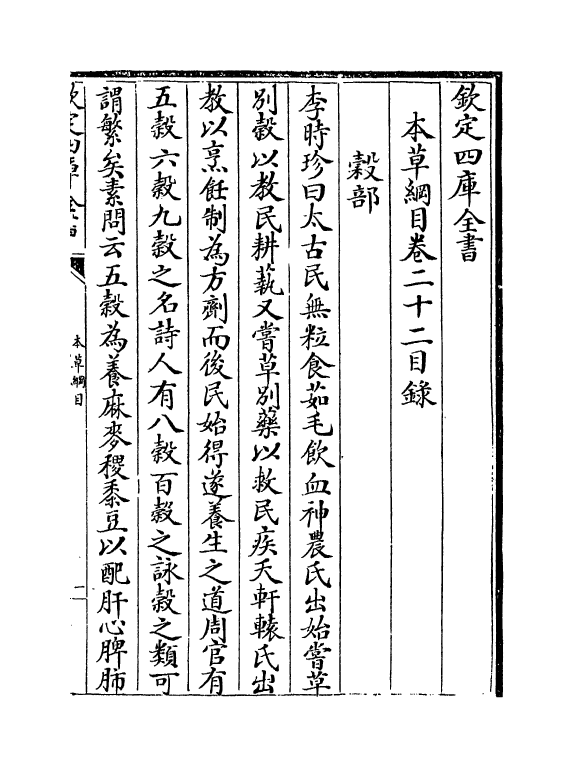 欽定四庫全書
本草綱目卷二十二目錄
穀部
李時珍曰太古民無粒食茹毛飲血神農氏出始嘗草
別穀以教民耕藝又嘗草別藥以救民疾夭軒轅氏出
教以烹飪制為方劑而後民始得遂養生之道周官有
五穀六穀九穀之名詩人有八穀百穀之詠穀之類可
謂繁矣素問云五穀為養麻麥稷黍豆以配肝心脾肺
欽定四庫全書
本草綱目